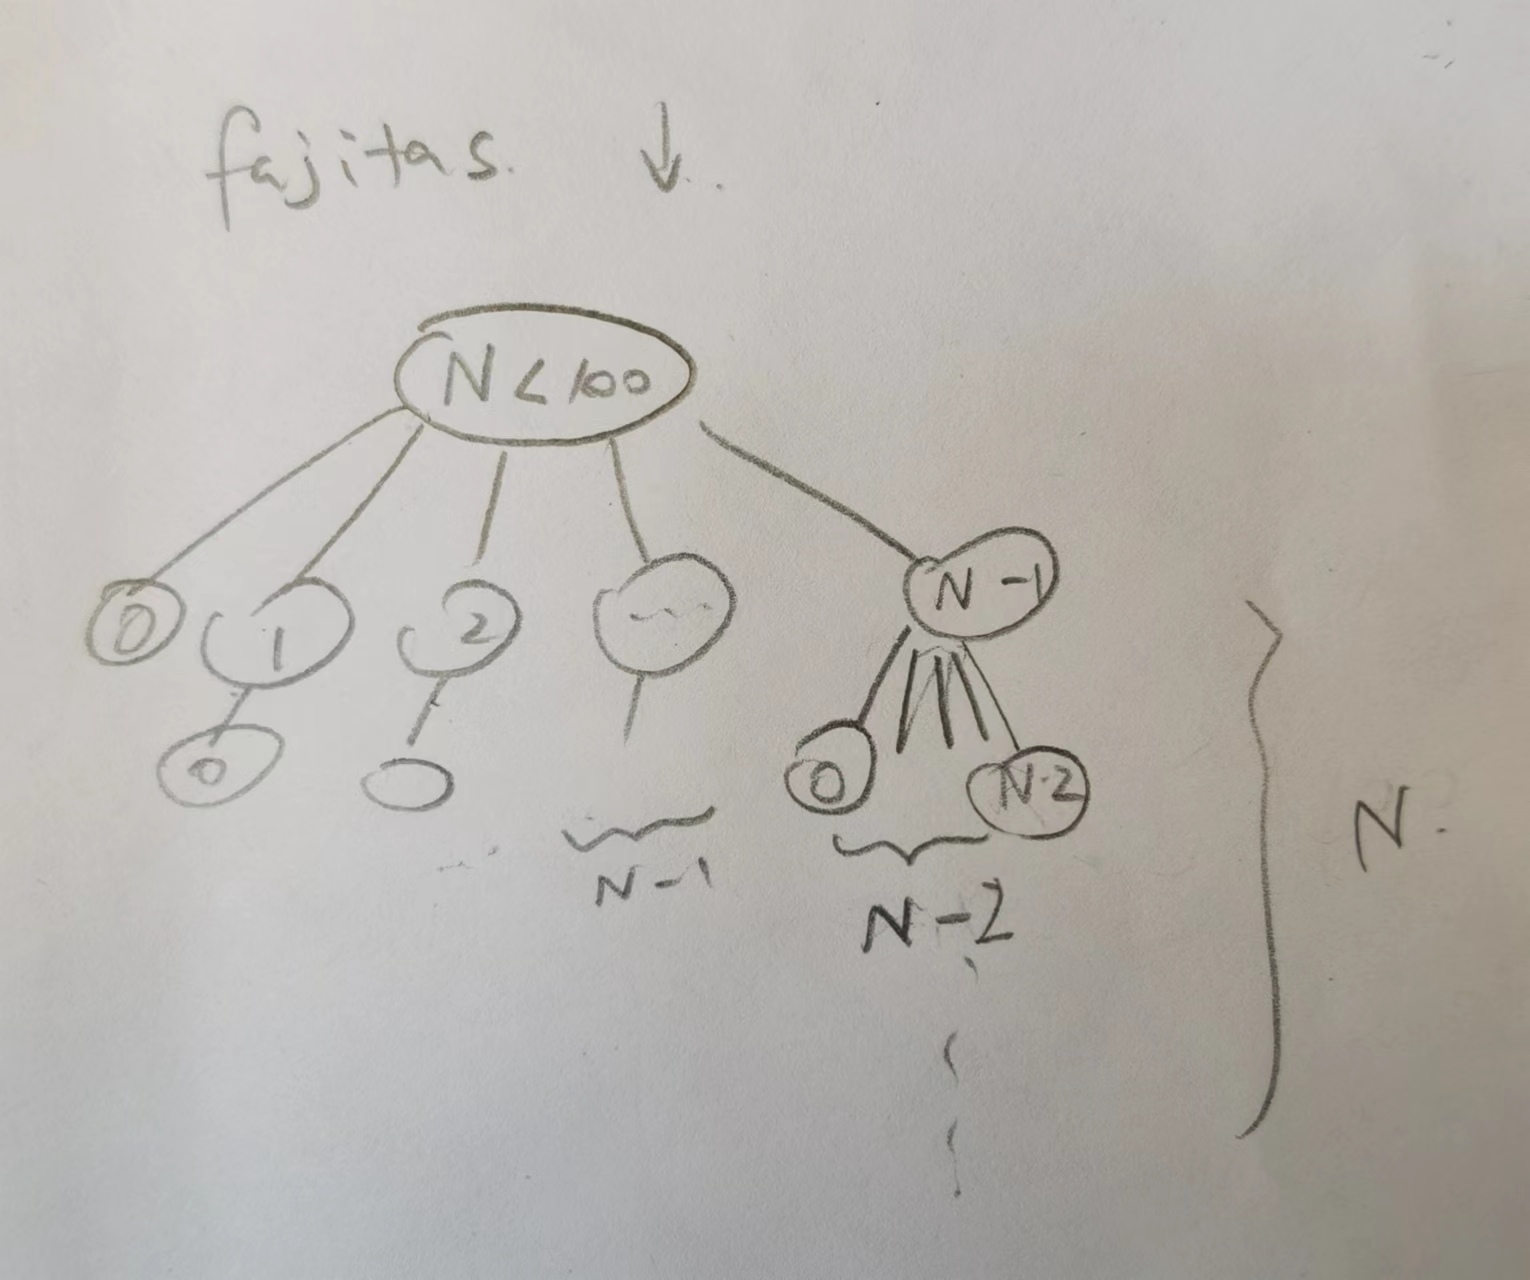 fajitas. ↓.
N < 100
0 1 2 --- N-1
0 0 N-2
N-1 N-2 N.